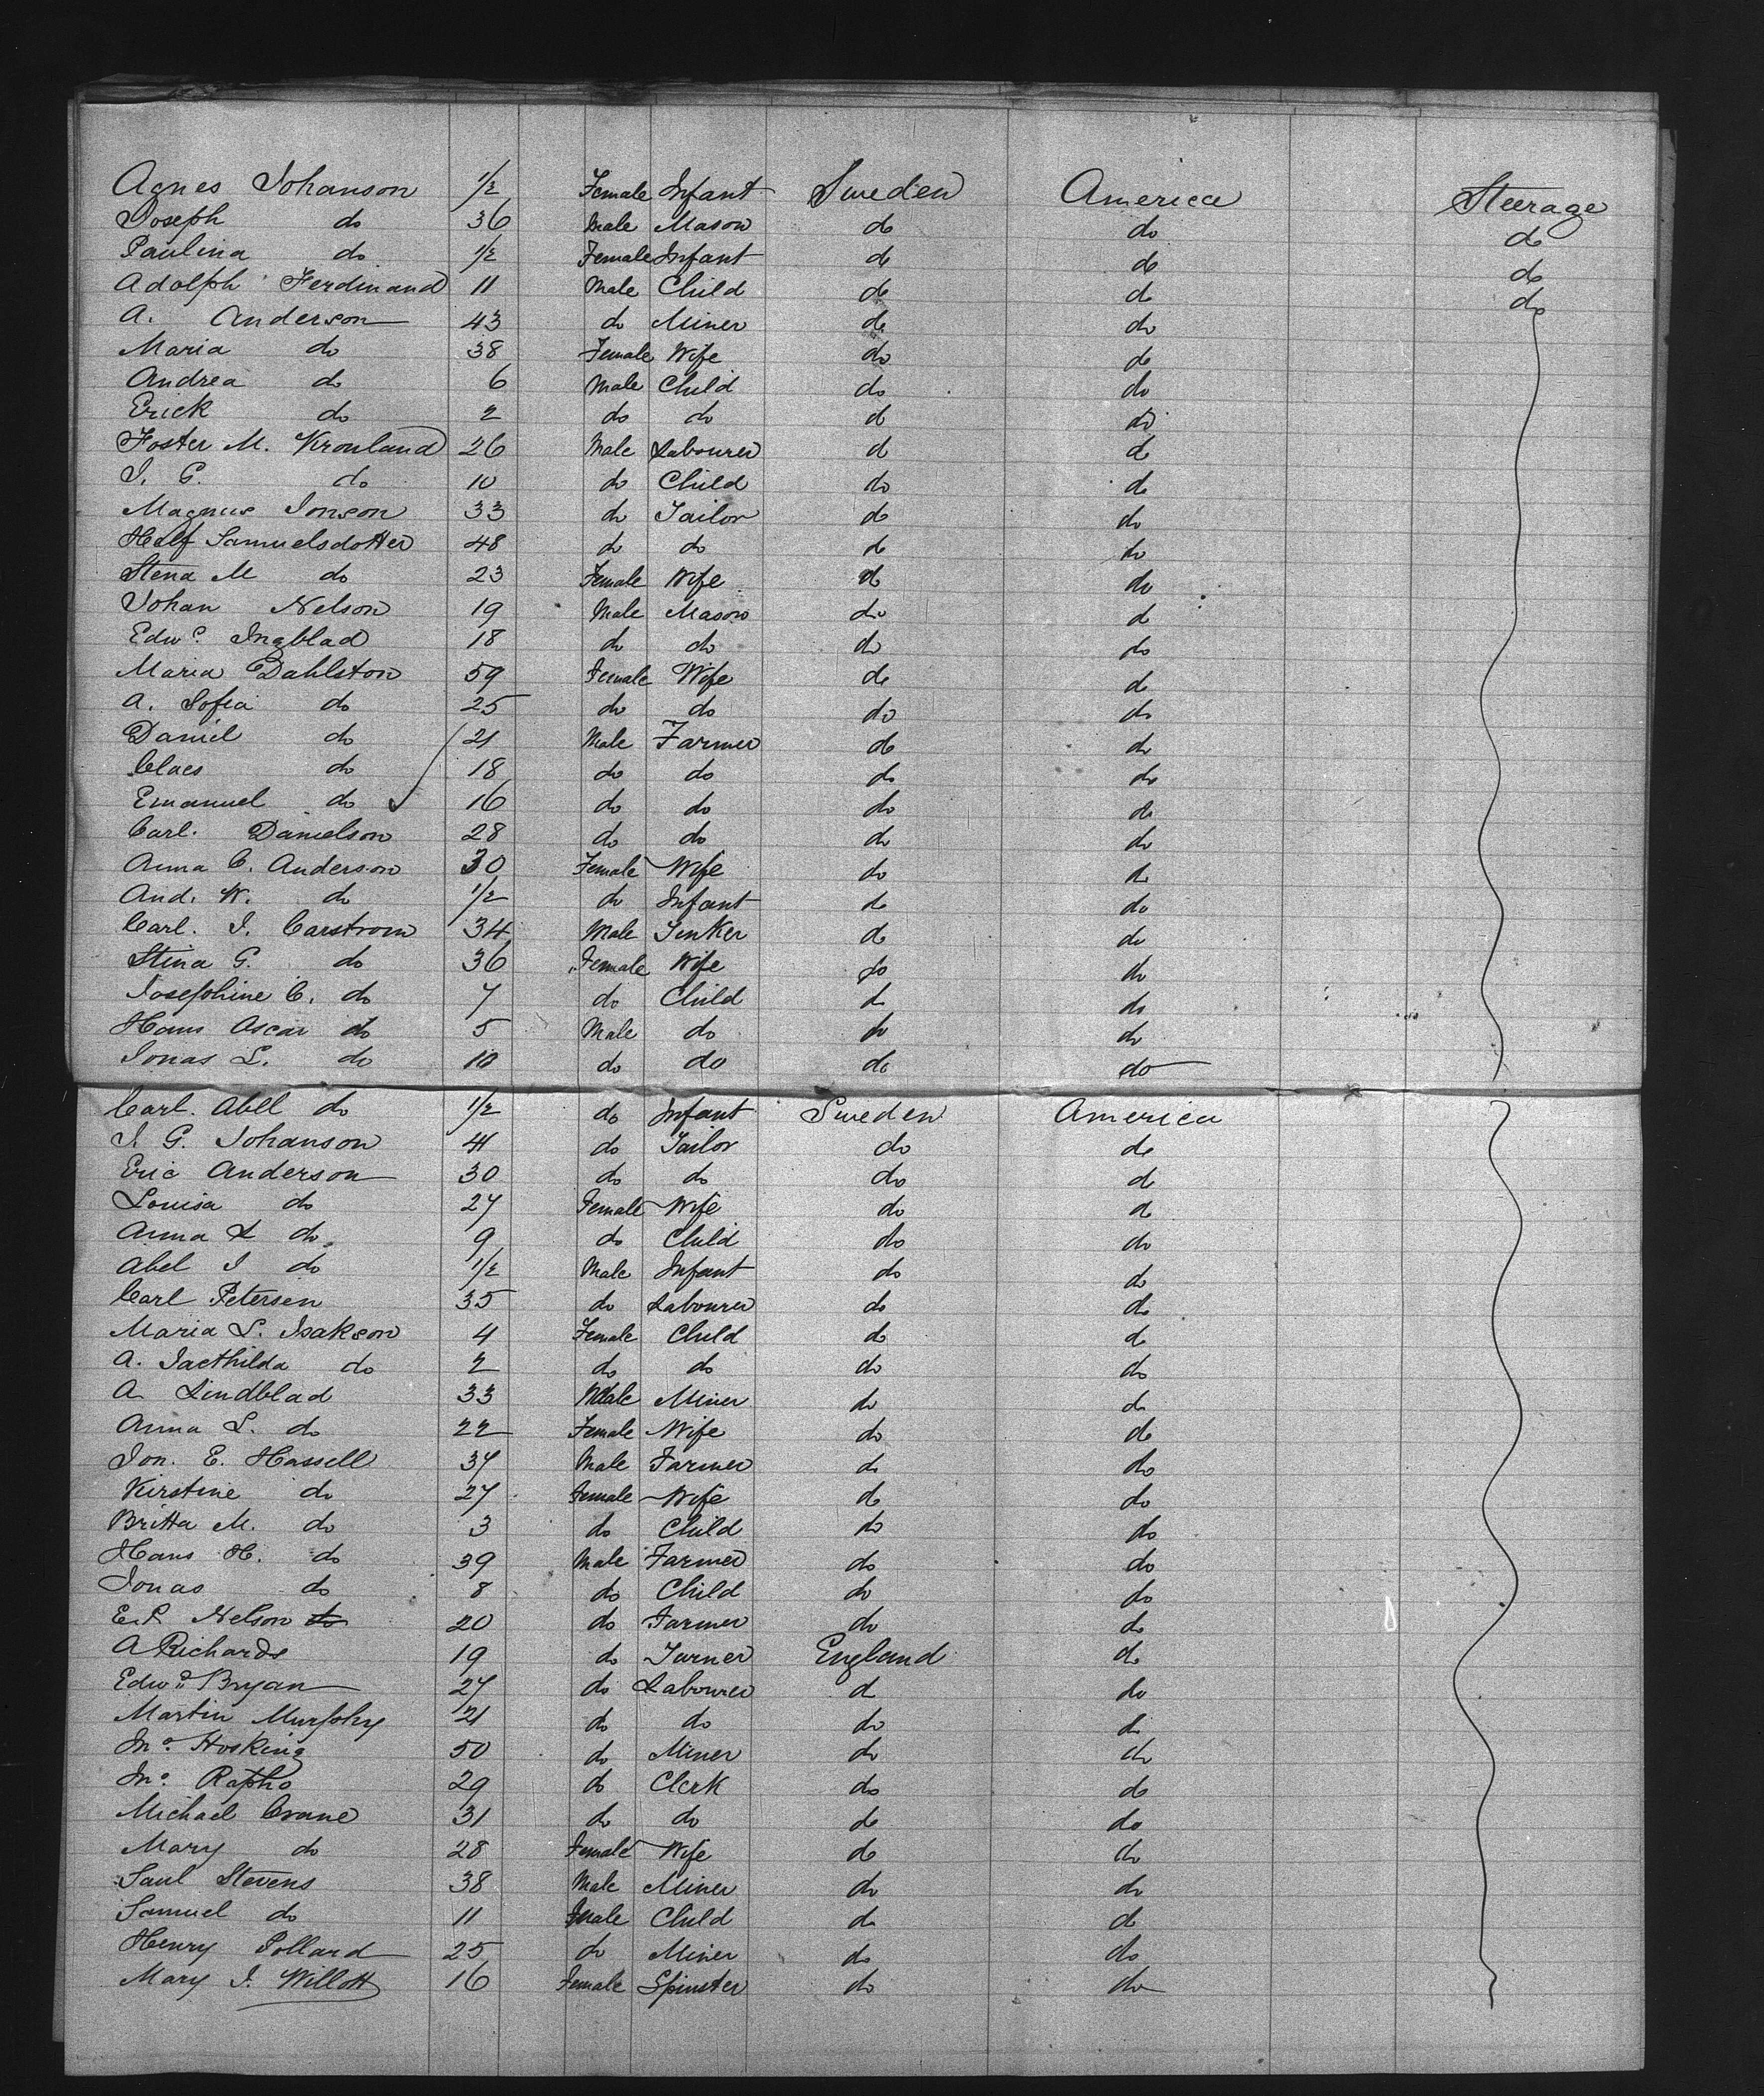 Agnes Johanson 1/2 Female Infant Sweden America Steerage
Joseph do 36 Male Mason do do do
Paulina do 1/2 Female Infant do do do
Adolph Ferdinand 11 Male Child do do do
A. Anderson 43 do Miner do do
Maria do 38 Female Wife do do
Andrea do 6 Male Child do do
Erick do 2 do do do do
Foster M. Kronland 26 Male Labourer do do
J. G. do 10 do Child do do
Magnus Jonson 33 do Tailor do do
Helf Samuelsdotter 48 do do do do
Stena M do 23 Female Wife do do
Johan Nelson 19 Male Mason do do
Edwd. Ingblad 18 do do do do
Maria Dahlston 59 Female Wife do do
A. Sofia do 25 do do do do
Daniel do 21 Male Farmer do do
Claes do 18 do do do do
Emanuel do 16 do do do do
Carl. Danielson 28 do do do do
Anna C. Anderson 30 Female Wife do do
And. W. do 1/2 do Infant do do
Carl. J. Carstrom 34 Male Tinker do do
Stina G. do 36 Female Wife do do
Josephine C. do 7 do Child do do
Hans Oscar do 5 Male do do do
Jonas L. do 10 do do do do
Carl. Abel do 1/2 do Infant Sweden America
J. G. Johanson 41 do Tailor do do
Eric Anderson 30 do do do do
Louisa do 27 Female Wife do do
Anna L do 9 do Child do do
Abel J do 1/2 Male Infant do do
Carl Petersen 35 do Labourer do do
Maria L. Isakson 4 Female Child do do
A. do 2 do do do do
A Lindblad 33 Male Miner do do
Anna L. do 22 Female Wife do do
Jon. E. Hassell 37 Male Farmer do do
Kirstine do 27 Female Wife do do
Britta M. do 3 do Child do do
Hans H. do 39 Male Farmer do do
Jonas do 8 do Child do do
E. P. Nelson do 20 do Farmer do do
A Richards 19 do Turner England do
Edwd. Bryan 27 do Labourer do do
Martin Murphy 21 do do do do
Jno. Hosking 50 do Miner do do
Jno. Rapho 29 do Clerk do do
Michael Crane 31 do do do do
Mary do 28 Female Wife do do
Saul Stevens 38 Male Miner do do
Samuel do 11 Male Child do do
Henry Pollard 25 do Miner do do
Mary J. Willott 16 Female Spinster do do